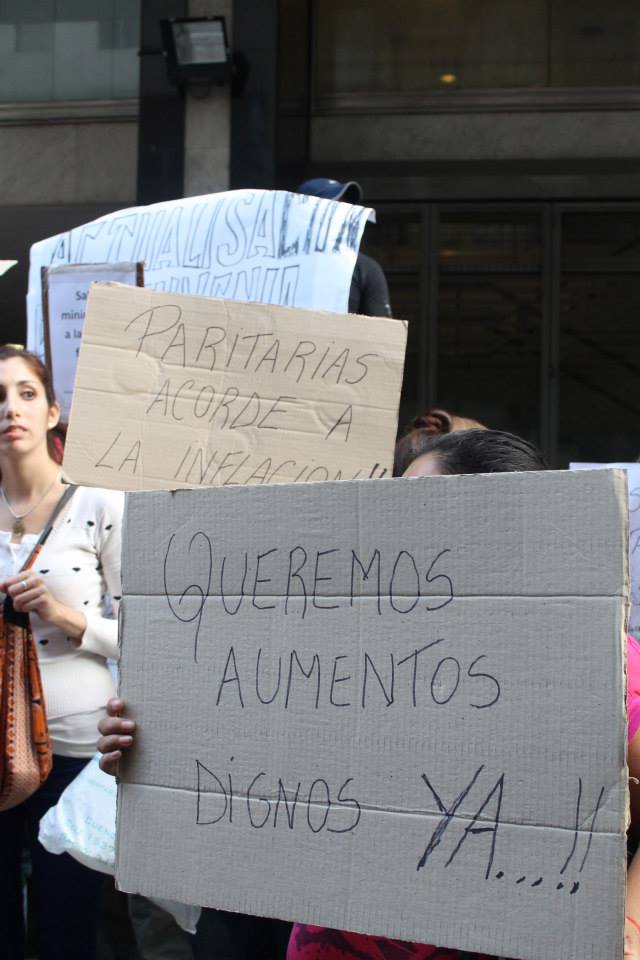 ACTUALISACIÓN
Sa
mini
a la
PARITARIAS
ACORDE A
LA INFLACION!!
QUEREMOS
AUMENTOS
DIGNOS YA....!!